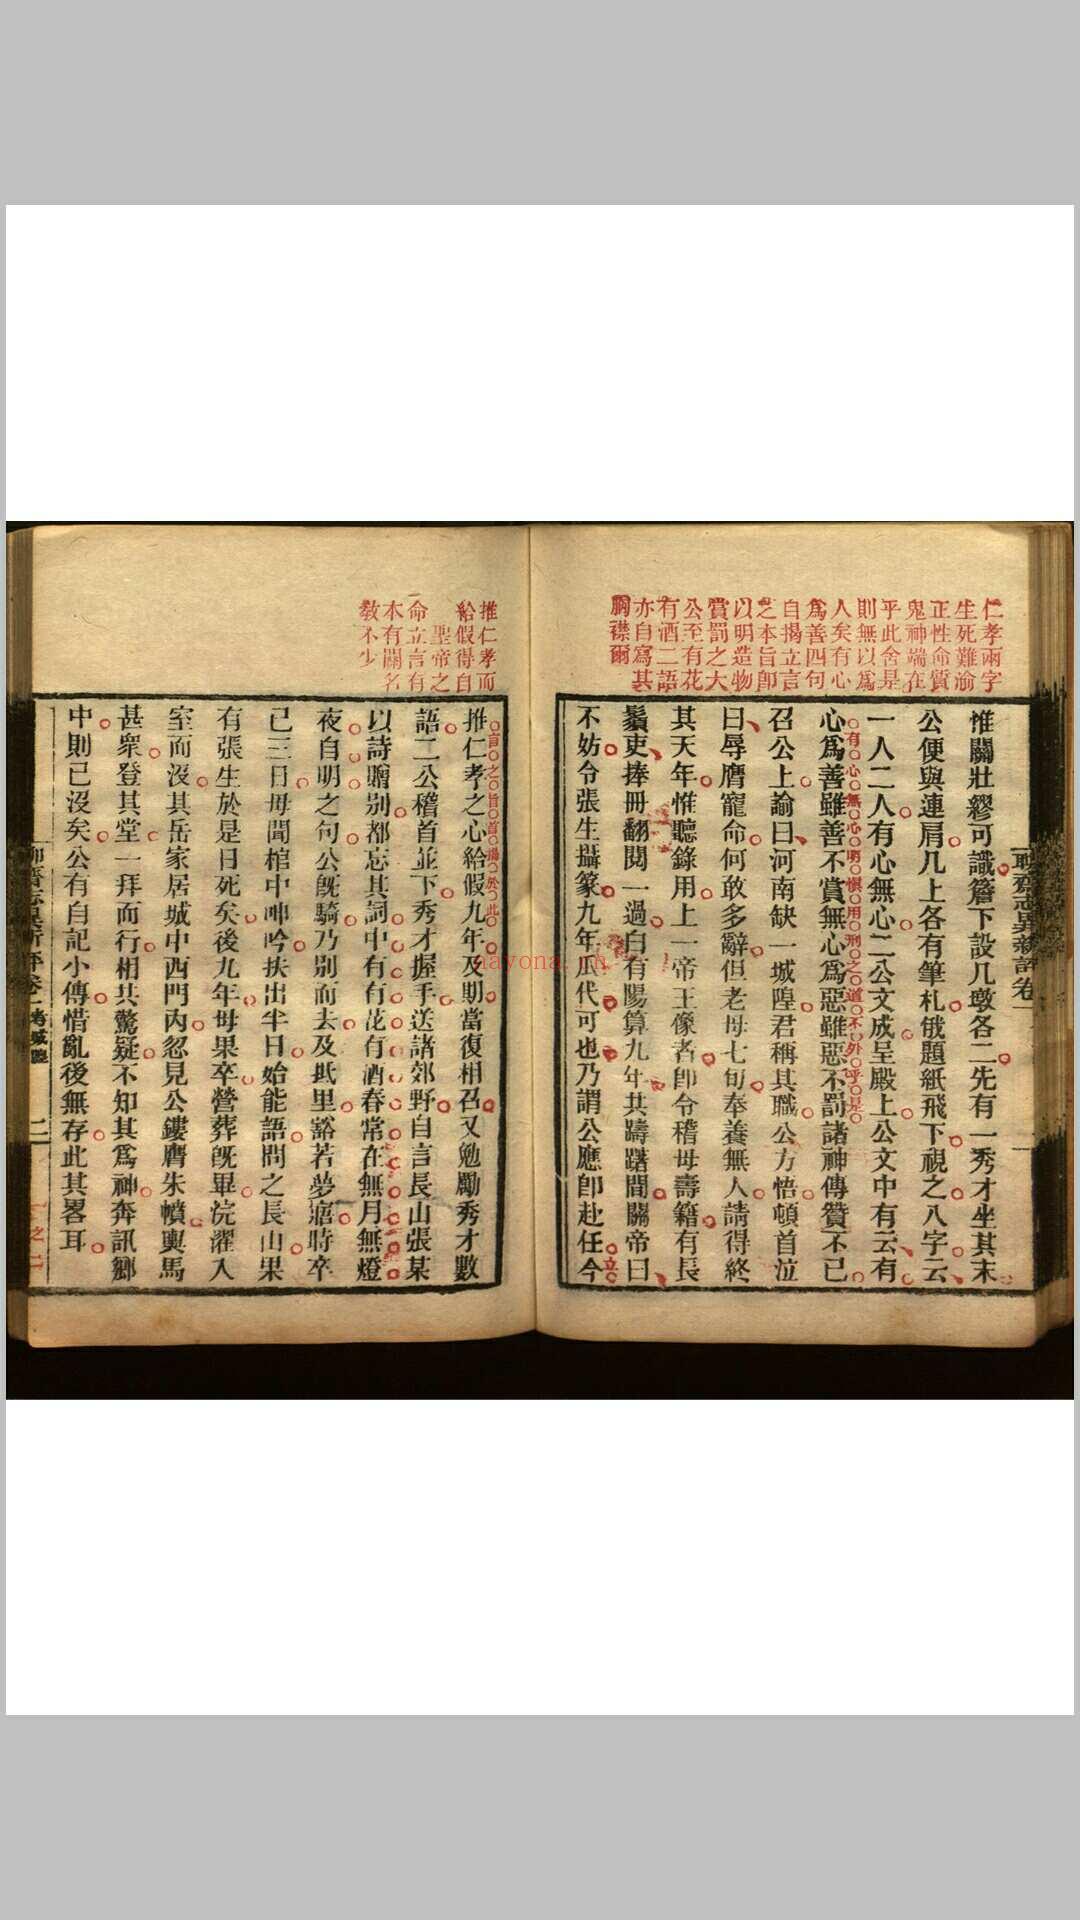 仁孝兩字
生死難渝
正性命質
鬼神端在
乎此舍是
則無以為
人矣有心
為善四句
自揭立言
之本旨卽
以明造物
賞罰之大
公至有花
有酒二語
亦自寫其
胸襟爾
聊齋志異新評卷一
一
惟關壯繆可識簷下設几墩各二先有一秀才坐其末
公便與連肩几上各有筆札俄題紙飛下視之八字云
一人二人有心無心二公文成呈殿上公文中有云有
有心無心明慎用刑之道不外乎是
心爲善雖善不賞無心爲惡雖惡不罰諸神傳贊不已
召公上諭曰河南缺一城隍君稱其職公方悟頓首泣
曰辱膺寵命何敢多辭但老母七旬奉養無人請得終
其天年惟聽錄用上一帝王像者卽令稽母壽籍有長
鬚吏捧冊翻閱一過白有陽算九年共躊躇間關帝曰
不妨令張生攝篆九年瓜代可也乃謂公應卽赴任今
立
推仁孝而
給假得自
聖帝之
命立言有
本有關名
教不少
言之旨首揭於此
推仁孝之心給假九年及期當復相召又勉勵秀才數
語二公稽首並下秀才握手送諸郊野自言長山張某
以詩贈別都忘其詞中有有花有酒春常在無月無燈
夜自明之句公旣騎乃別而去及抵里豁若夢寤時卒
已三日母聞棺中呻吟扶出半日始能語問之長山果
有張生於是日死矣後九年母果卒營葬旣畢浣濯入
室而沒其岳家居城中西門內忽見公鏤膺朱幩輿馬
甚衆登其堂一拜而行相共驚疑不知其爲神奔訊鄉
中則已沒矣公有自記小傳惜亂後無存此其畧耳
聊齋志異新評卷一考城隍
二
一之二
nayona.cn